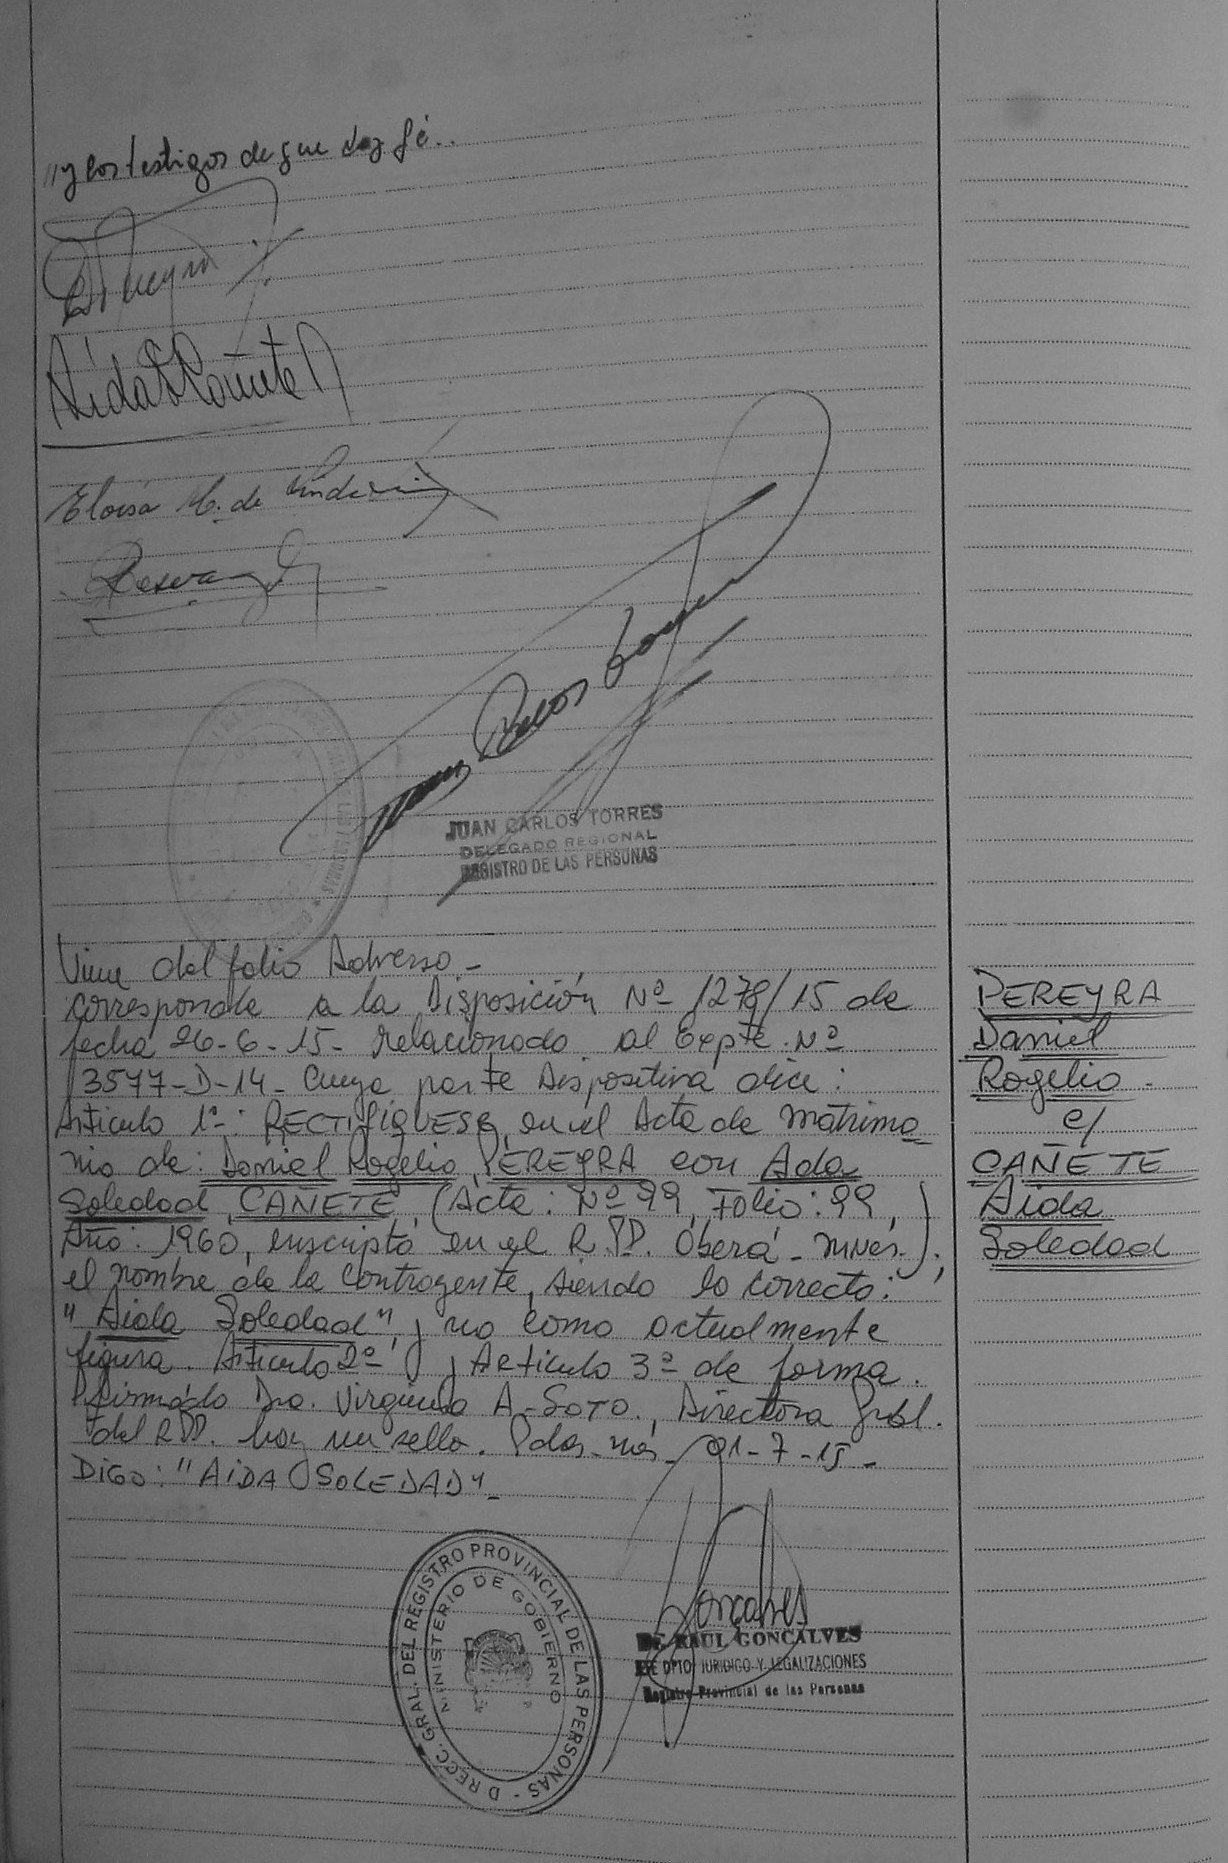 "y los testigos de que doy fé..
Aída S Cañete
Eloisa M. de
Juan Carlos Torres
JUAN CARLOS TORRES
DELEGADO REGIONAL
REGISTRO DE LAS PERSONAS
Viene del folio Adverso.-
Corresponde a la Disposición Nº 1278/15 de
fecha 26-6-15- Relacionado al Expte. Nº
3577-D-14- Cuya parte Dispositiva dice:
Articulo 1º: RECTIFIQUESE, en el Acta de Matrimo
nio de: Daniel Rogelio PEREYRA con Ada
Soledad CAÑETE, (Acta: Nº 99, Folio: 99,
Año: 1960, inscripta en el R.PP. Oberá-Mnes.);
el nombre de la contrayente, siendo lo correcto:
"Aida Soledad", y no como actualmente
figura. Articulo 2º y Articulo 3º de forma.
firmado Dra. Virginia A. SOTO. Directora Gral.
del RPP. hay un sello. Pdas-Mnes- 01-7-15-
DIGO: "AIDA SOLEDAD"-
PEREYRA
Daniel
Rogelio -
c/
CAÑETE
Aida
Soledad
DIRECC. GRAL. DEL REGISTRO PROVINCIAL DE LAS PERSONAS -
MINISTERIO DE GOBIERNO
Goncalves
RAUL GONCALVES
JEFE DPTO. JURIDICO Y LEGALIZACIONES
Registro Provincial de las Personas